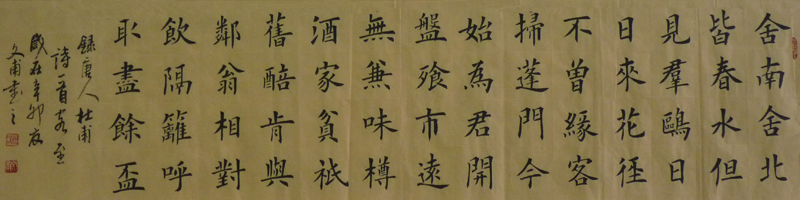 舍南舍北
皆春水但
見羣鷗日
日來花徑
不曾緣客
掃蓬門今
始為君開
盤飧市遠
無兼味樽
酒家貧祇
舊醅肯與
鄰翁相對
飲隔籬呼
取盡餘盃
錄唐人杜甫
詩一首客至
歲在辛卯
文甫書之